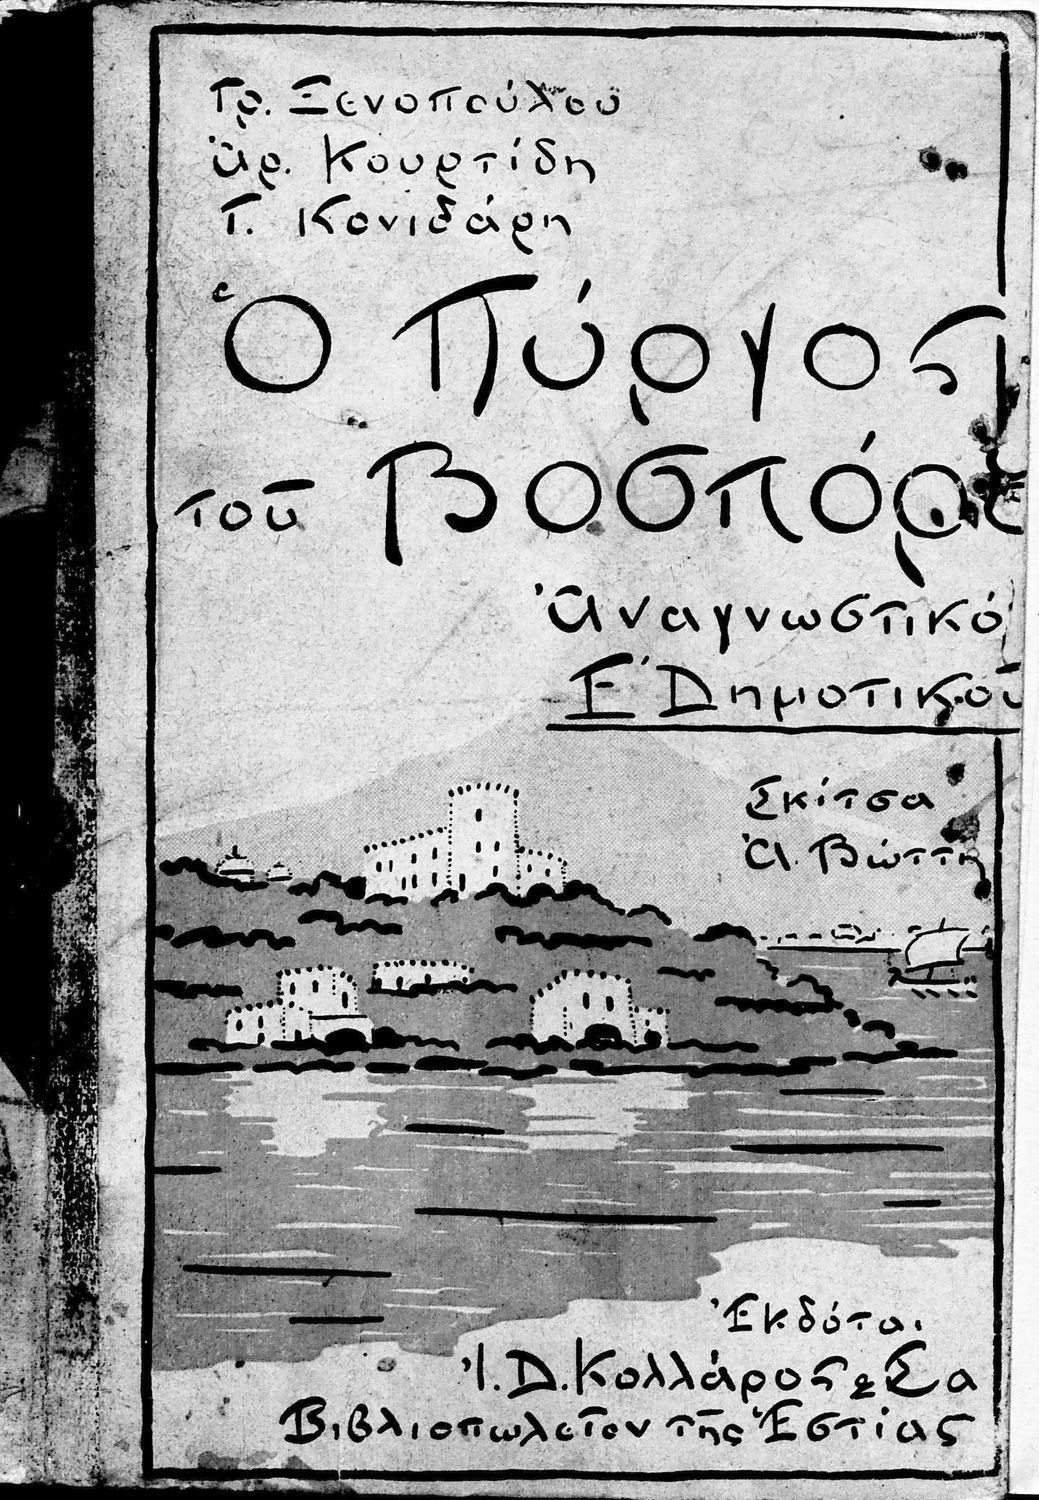 Γρ. Ξενοπούλου
Ἀρ. Κουρτίδη
Γ. Κονιδάρη
Ὁ Πύργος
τοῦ Βοσπόρου
Ἀναγνωστικό
Ε' Δημοτικοῦ
Σκίτσα
Ἀ. Βώττη
Ἐκδόται
Ἰ. Δ. Κολλάρος & Σα
Βιβλιοπωλεῖον τῆς Ἑστίας